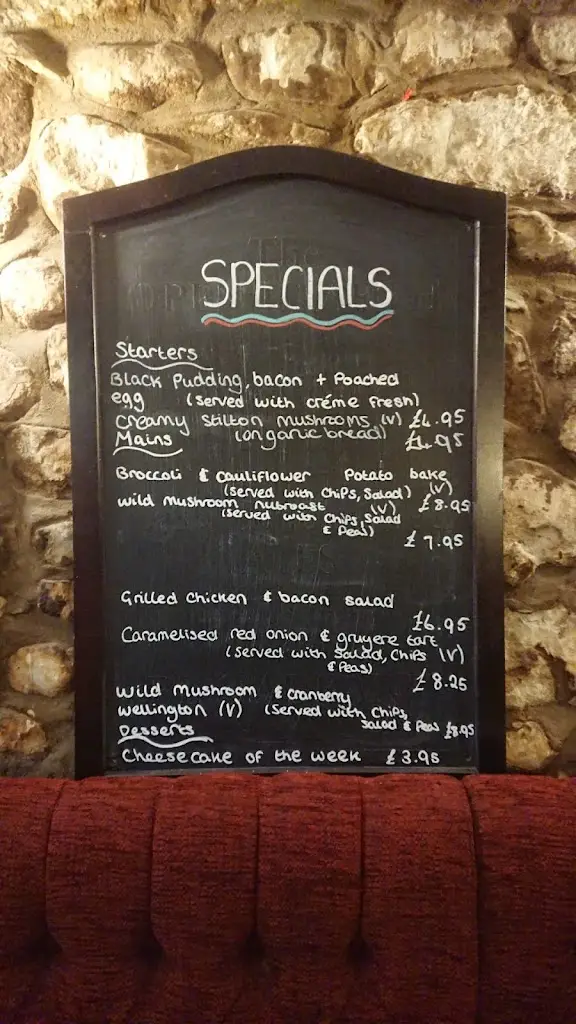 SPECIALS
Starters
Black Pudding, bacon + Poached
egg (served with créme fresh)
creamy stilton mushrooms (v) £4.95
(organic bread) £4.95
Mains
Broccoli & cauliflower Potato bake
(served with chips, salad) (v)
£8.95
wild mushroom nutroast (v)
(served with chips, salad
& Peas)
£7.95
Grilled chicken & bacon salad
£6.95
Caramelised red onion & gruyere tart
(served with salad, chips (v)
& Peas)
£8.25
wild mushroom & cranberry
wellington (v) (served with chips,
salad & Peas £8.95
Desserts
Cheesecake of the week £3.95